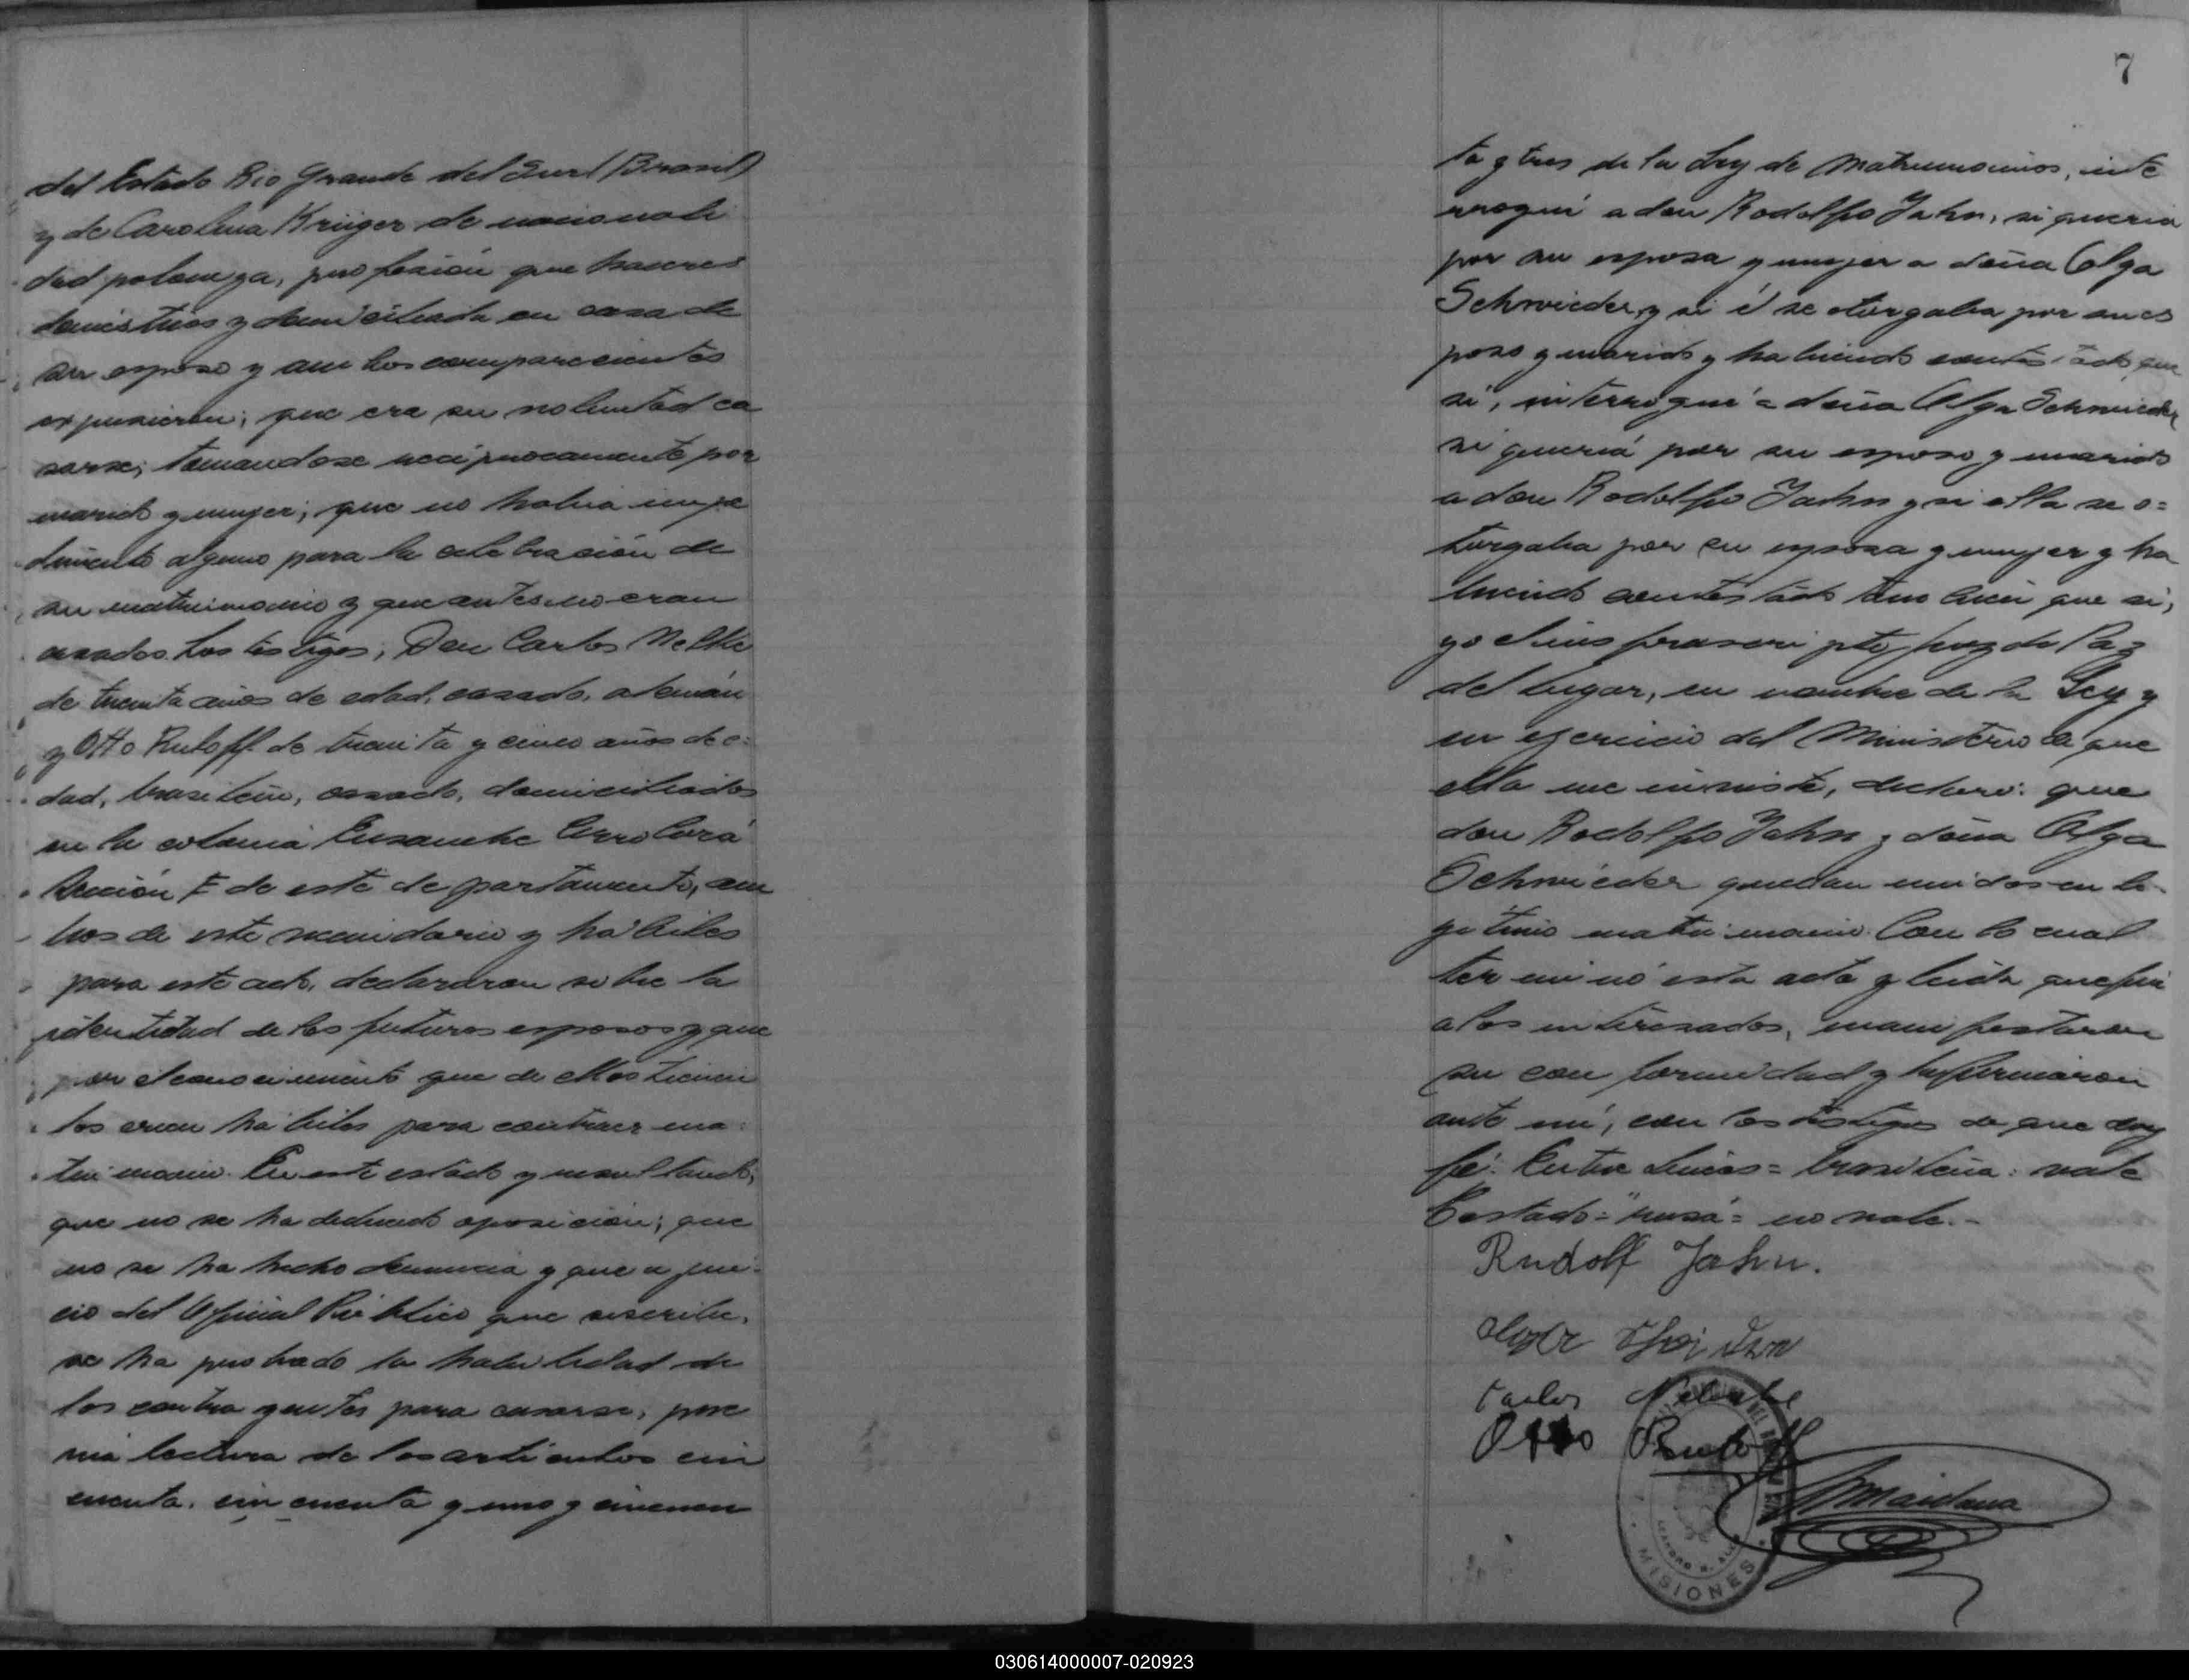 del Estado Rio Grande del Surd (Brasil)
y de Carolina Krüger de nacionali
dad polaneza, profesión que haceres
domésticos y domiciliada en casa de
su esposo y ambos comparecientes
expusieron; que era su voluntad ca
sarse, tomandose reciprocamente por
marido y mujer; que no habia impe
dimento alguno para la celebración de
su matrimonio y que antes no eran
casados. Los testigos; Don Carlos
de treinta años de edad, casado, alemán
y Otto Ruloff de treinta y cinco años de e=
dad, brasileño, casado, domiciliados
en la colonia Ensanche Cerro Corá
Sección de este departamento, am
bos de este vecindario y hábiles
para este acto, declararon sobre la
identidad de los futuros esposos y que
por el conocimiento que de ellos tienen
los creen hábiles para contraer ma=
trimonio. En este estado y resultando,
que no se ha deducido oposición; que
no se ha hecho denuncia y que a jui=
cio del Oficial Público que suscribe,
se ha probado la habilidad de
los contrayentes para casarse, previa
lectura de los artículos cin
cuenta, cincuenta y uno y cincuen
7
ta y tres de la Ley de Matrimonios, inte
rrogué a don Rodolfo Jahn, si queria
por su esposa y mujer a doña Olga
Schmieder, y si él se otorgaba por su es
poso y marido y habiendo contestado que
sí, interrogué a doña Olga Schmieder,
si quería por su esposo y marido
a don Rodolfo Jahn y si ella se o=
torgaba por su esposa y mujer y ha
biendo contestado tambien que si,
yo el infrascripto Juez de Paz
del lugar, en nombre de la Ley y
en ejercicio del Ministerio de que
ella me inviste, declaro: que
don Rodolfo Jahn y doña Olga
Schmieder quedan unidos en le
gitimo matrimonio. Con lo cual
terminó esta acta y leída que fué
a los interesados, manifestaron
su conformidad y la firmaron
ante mí, con los testigos de que doy
fé. Entre lineas = brasileña: vale
Testado= "rusa"= no vale.-
Rudolf Jahn.
Carlos
Otto Ruloff
Maidana
MISIONES
030614000007-020923